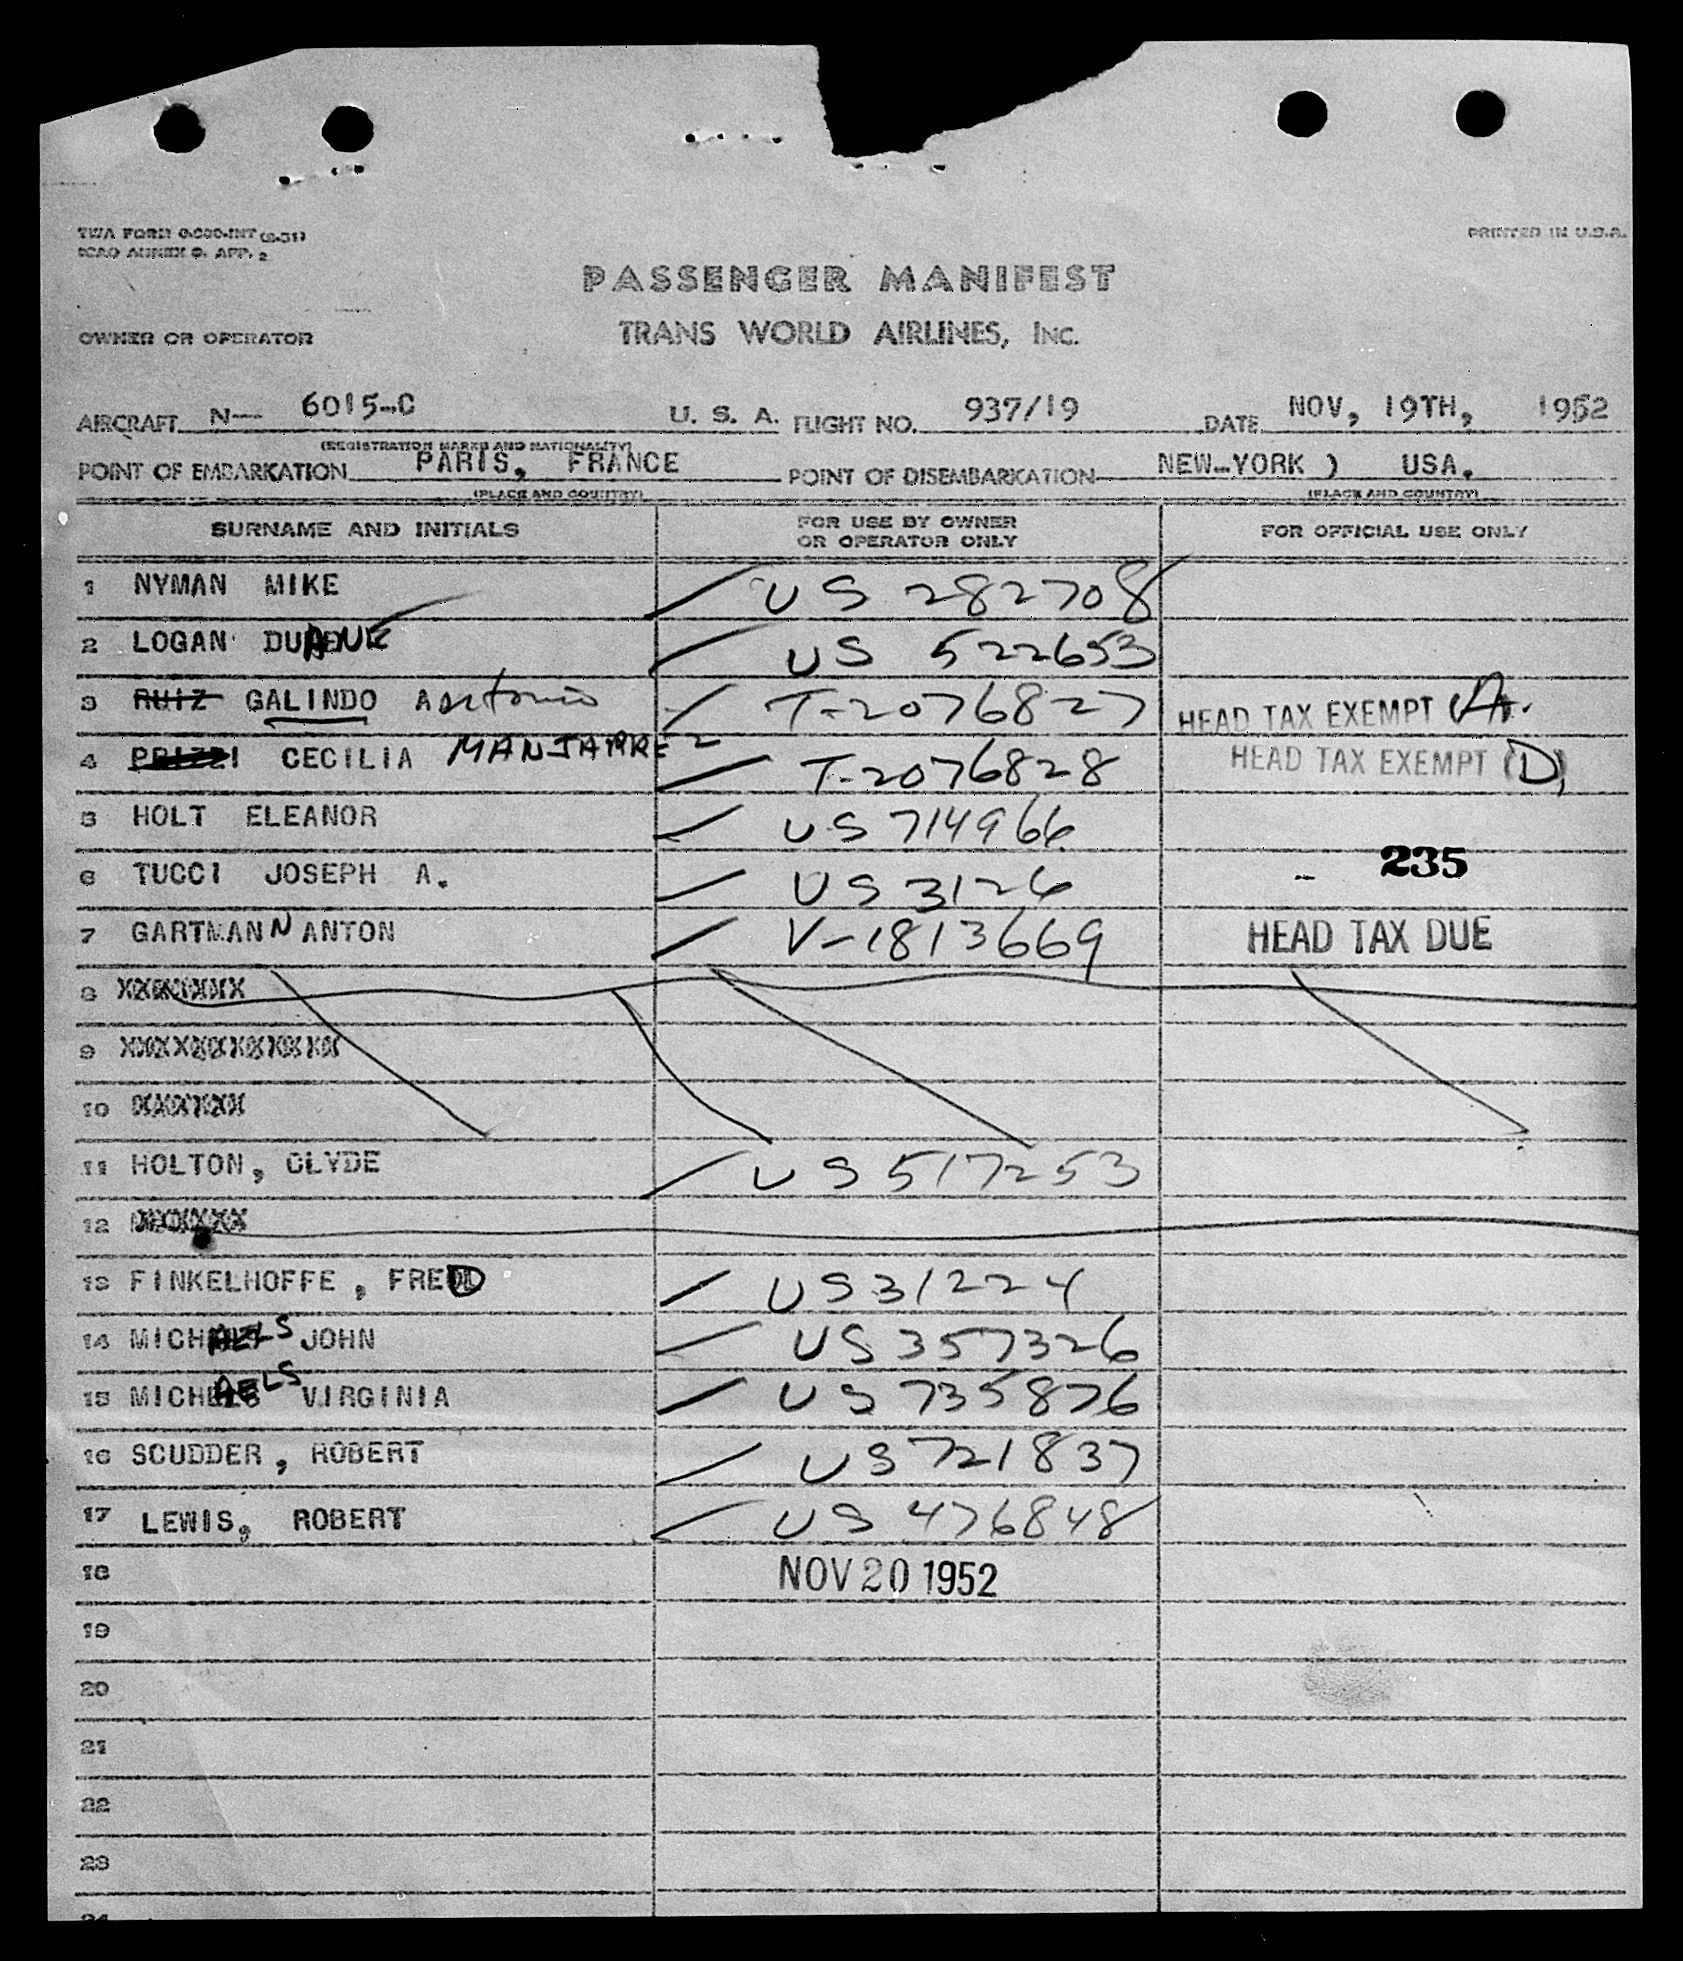 TWA FORM 0-300-INT (8-51)
ICAO ANNEX 9. APP. 2
PRINTED IN U.S.A.
PASSENGER MANIFEST
OWNER OR OPERATOR TRANS WORLD AIRLINES, INC.
AIRCRAFT N— 6015-C U. S. A. FLIGHT NO. 937/19 DATE NOV, 19TH, 1952
(REGISTRATION MARKS AND NATIONALITY)
POINT OF EMBARKATION PARIS, FRANCE POINT OF DISEMBARKATION NEW-YORK ) USA.
(PLACE AND COUNTRY) (PLACE AND COUNTRY)
SURNAME AND INITIALS FOR USE BY OWNER OR OPERATOR ONLY FOR OFFICIAL USE ONLY
1 NYMAN MIKE US 282708
2 LOGAN DUANE US 522653
3 RUIZ GALINDO Antonio T-2076827 HEAD TAX EXEMPT (A.
4 CECILIA MANJARREZ T-2076828 HEAD TAX EXEMPT (D)
5 HOLT ELEANOR US 714966
6 TUCCI JOSEPH A. US 3126 - 235
7 GARTMANN ANTON V-1813669 HEAD TAX DUE
8 XXXXXXX
9 XXXXXXXXXXXX
10 XXXXXX
11 HOLTON, CLYDE US 517253
12 XXXXXX
13 FINKELHOFFE, FRED US 31224
14 MICHAELS JOHN US 357326
15 MICHAELS VIRGINIA US 735876
16 SCUDDER, ROBERT US 721837
17 LEWIS, ROBERT US 476848
18 NOV 20 1952
19
20
21
22
23
24